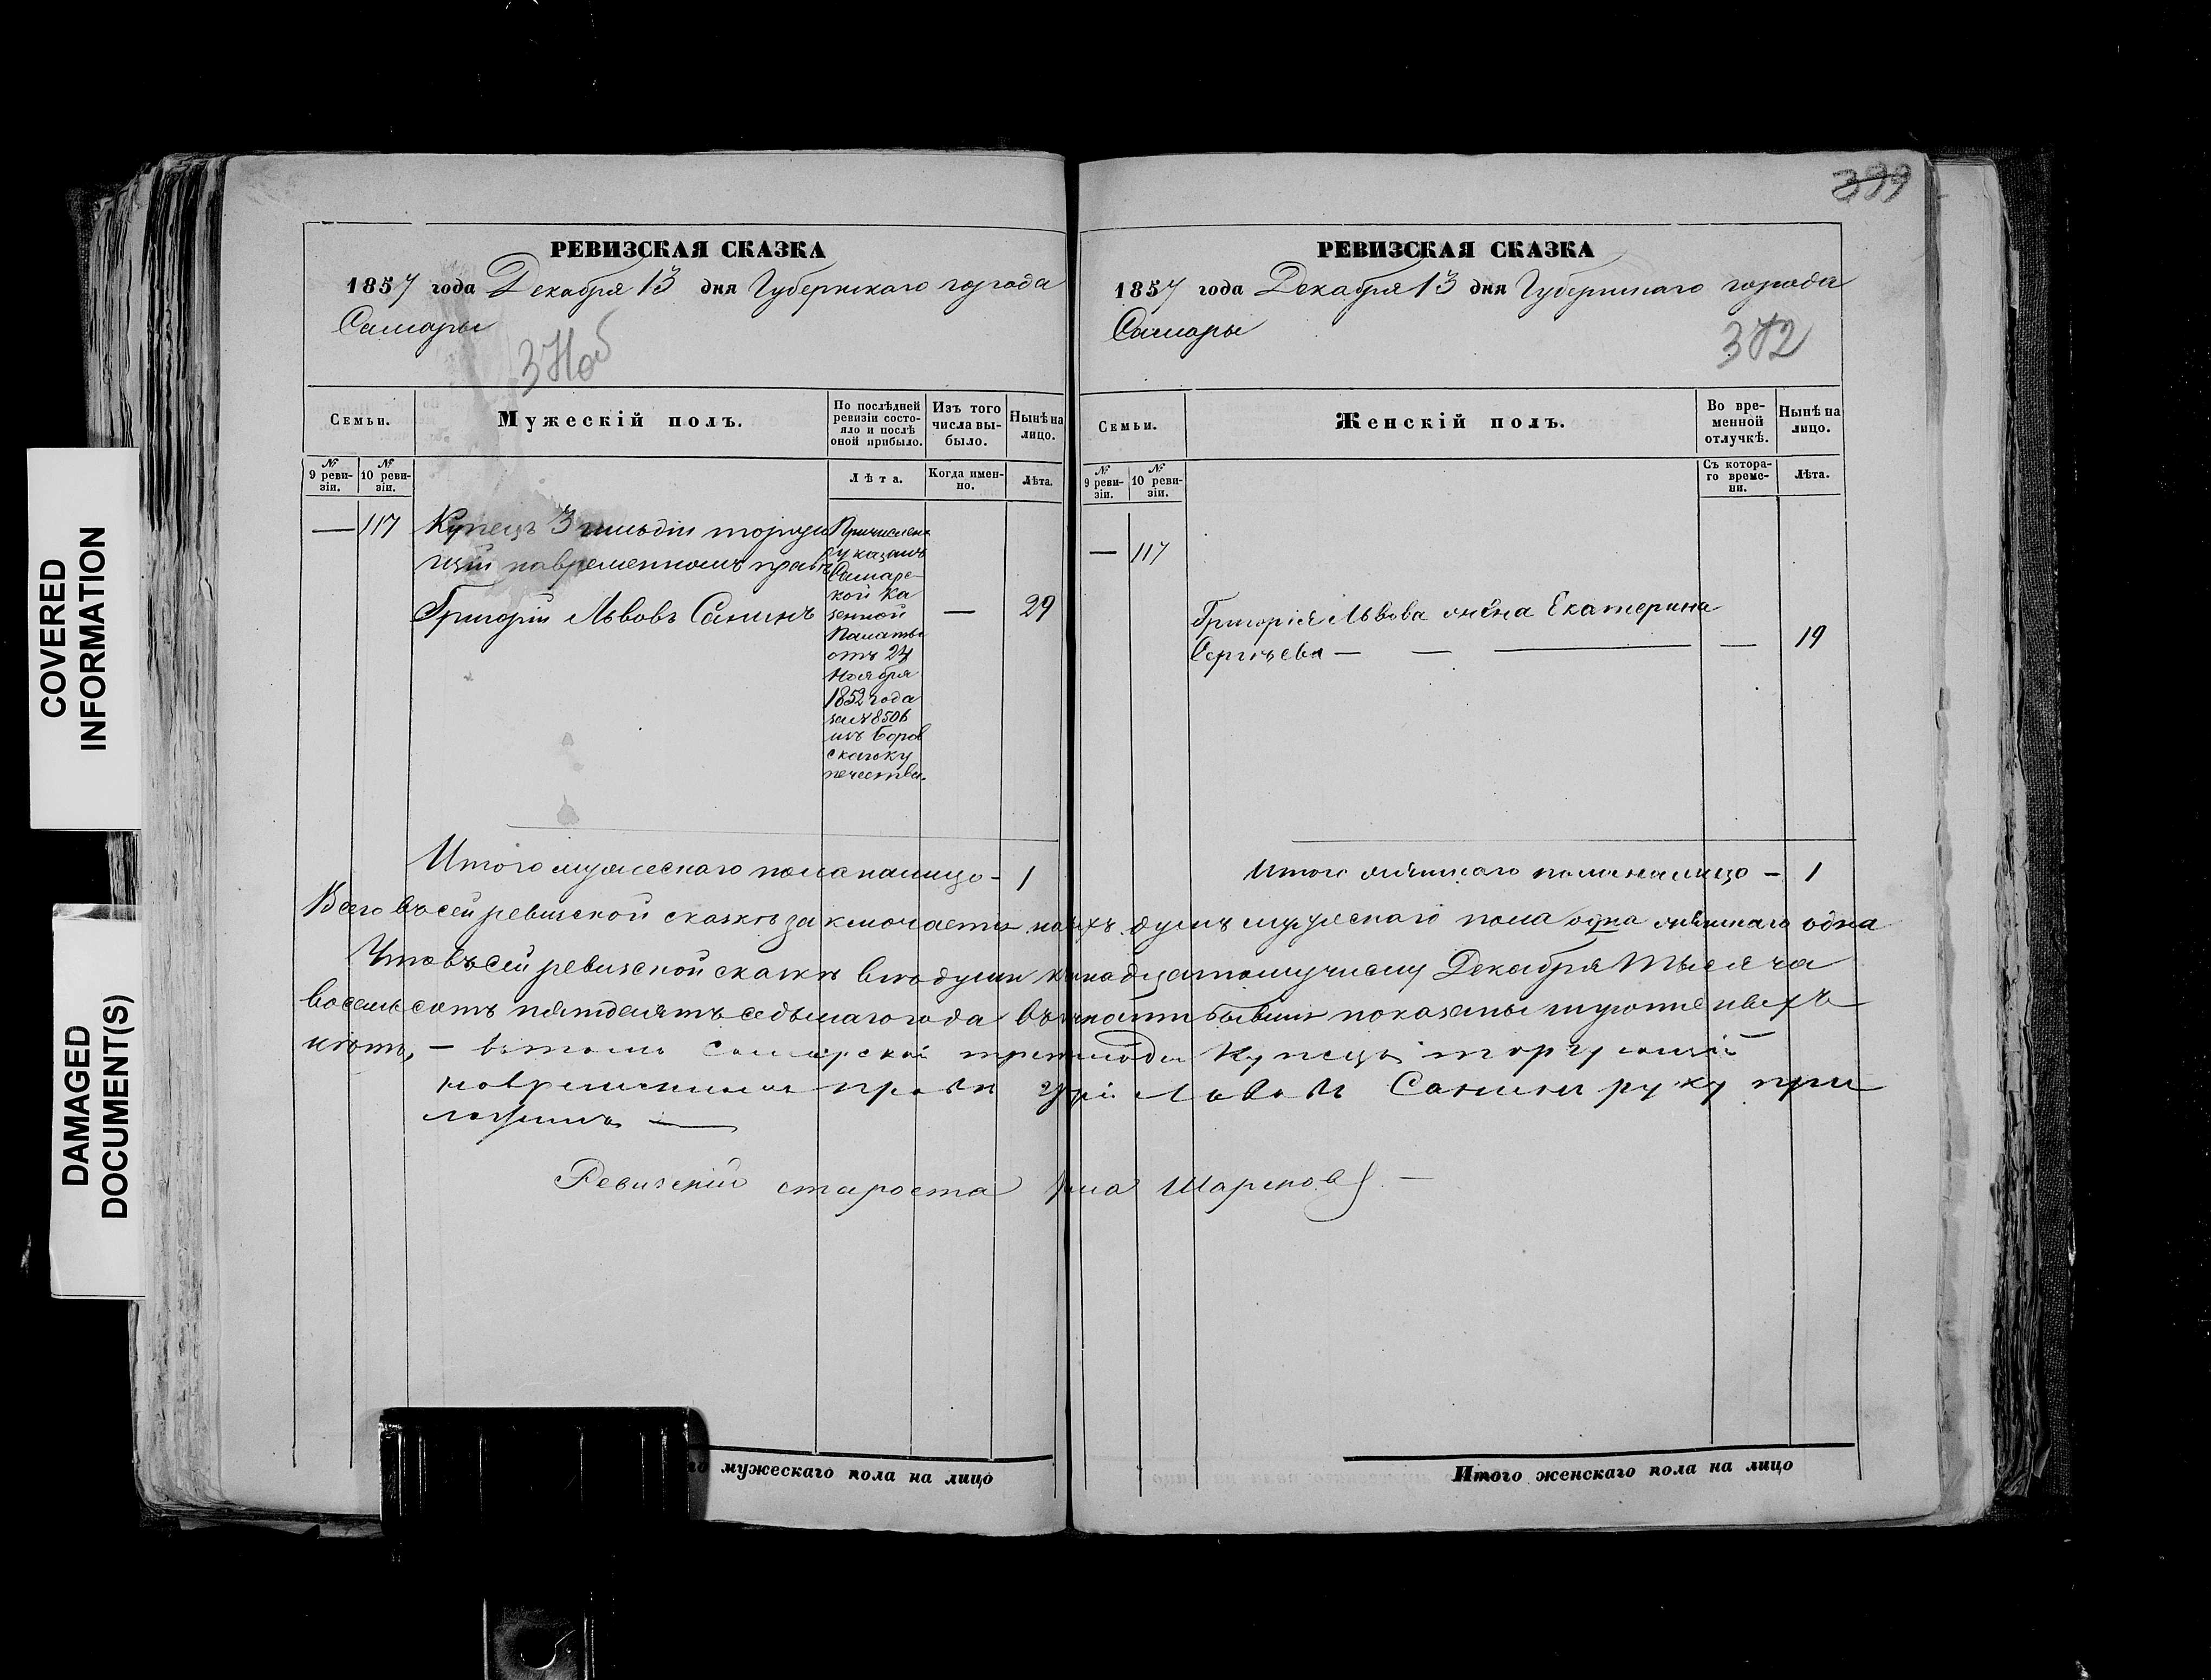 COVERED
INFORMATION
DAMAGED
DOCUMENT(S)
РЕВИЗСКАЯ СКАЗКА
1857 года Декабря 13 дня Губернскаго города
Самары
Семьи.
Мужескій полъ.
По послѣдней
ревизіи состо-
яло и послѣ
оной прибыло.
Изъ того
числа вы-
было.
Нынѣ на
лицо.
№
9 реви-
зіи.
№
10 реви-
зіи.
Лѣта.
Когда имен-
но.
Лѣта.
— 117 Купецъ 3 гильдіи торгую
щій повременномъ правѣ
Григорій Львовъ Санинъ — 29
Причислен
указамъ
Самарс-
кой Ка
зенной
Палаты
отъ 24
Ноября
1852 года
за № 8506
изъ Боров
скаго ку
печества.
Итого мужескаго пола налицо - 1
399
РЕВИЗСКАЯ СКАЗКА
1857 года Декабря 13 дня Губернскаго города
Самары
372
Семьи.
Женскій полъ.
Во вре-
менной
отлучкѣ.
Нынѣ на
лицо.
№
9 реви-
зіи.
№
10 реви-
зіи.
Съ котора-
го време-
ни.
Лѣта.
— 117
Григорія Львова жена Екатерина
Сергѣева — — — — 19
Итого женскаго пола налицо - 1
Всего въ сей ревизской сказкѣ заключается душъ мужескаго пола одна женскаго одна
Что въ сей ревизской сказкѣ всѣ души числу Декабря Тысяча
восемьсотъ пятдесятъ седьмаго года показаны и
нѣтъ, - въ томъ Самарской Купецъ торгующій
повременномъ правѣ Львовъ Санинъ руку при
ложилъ —
Ревизскій староста
мужескаго пола на лицо
Итого женскаго пола на лицо